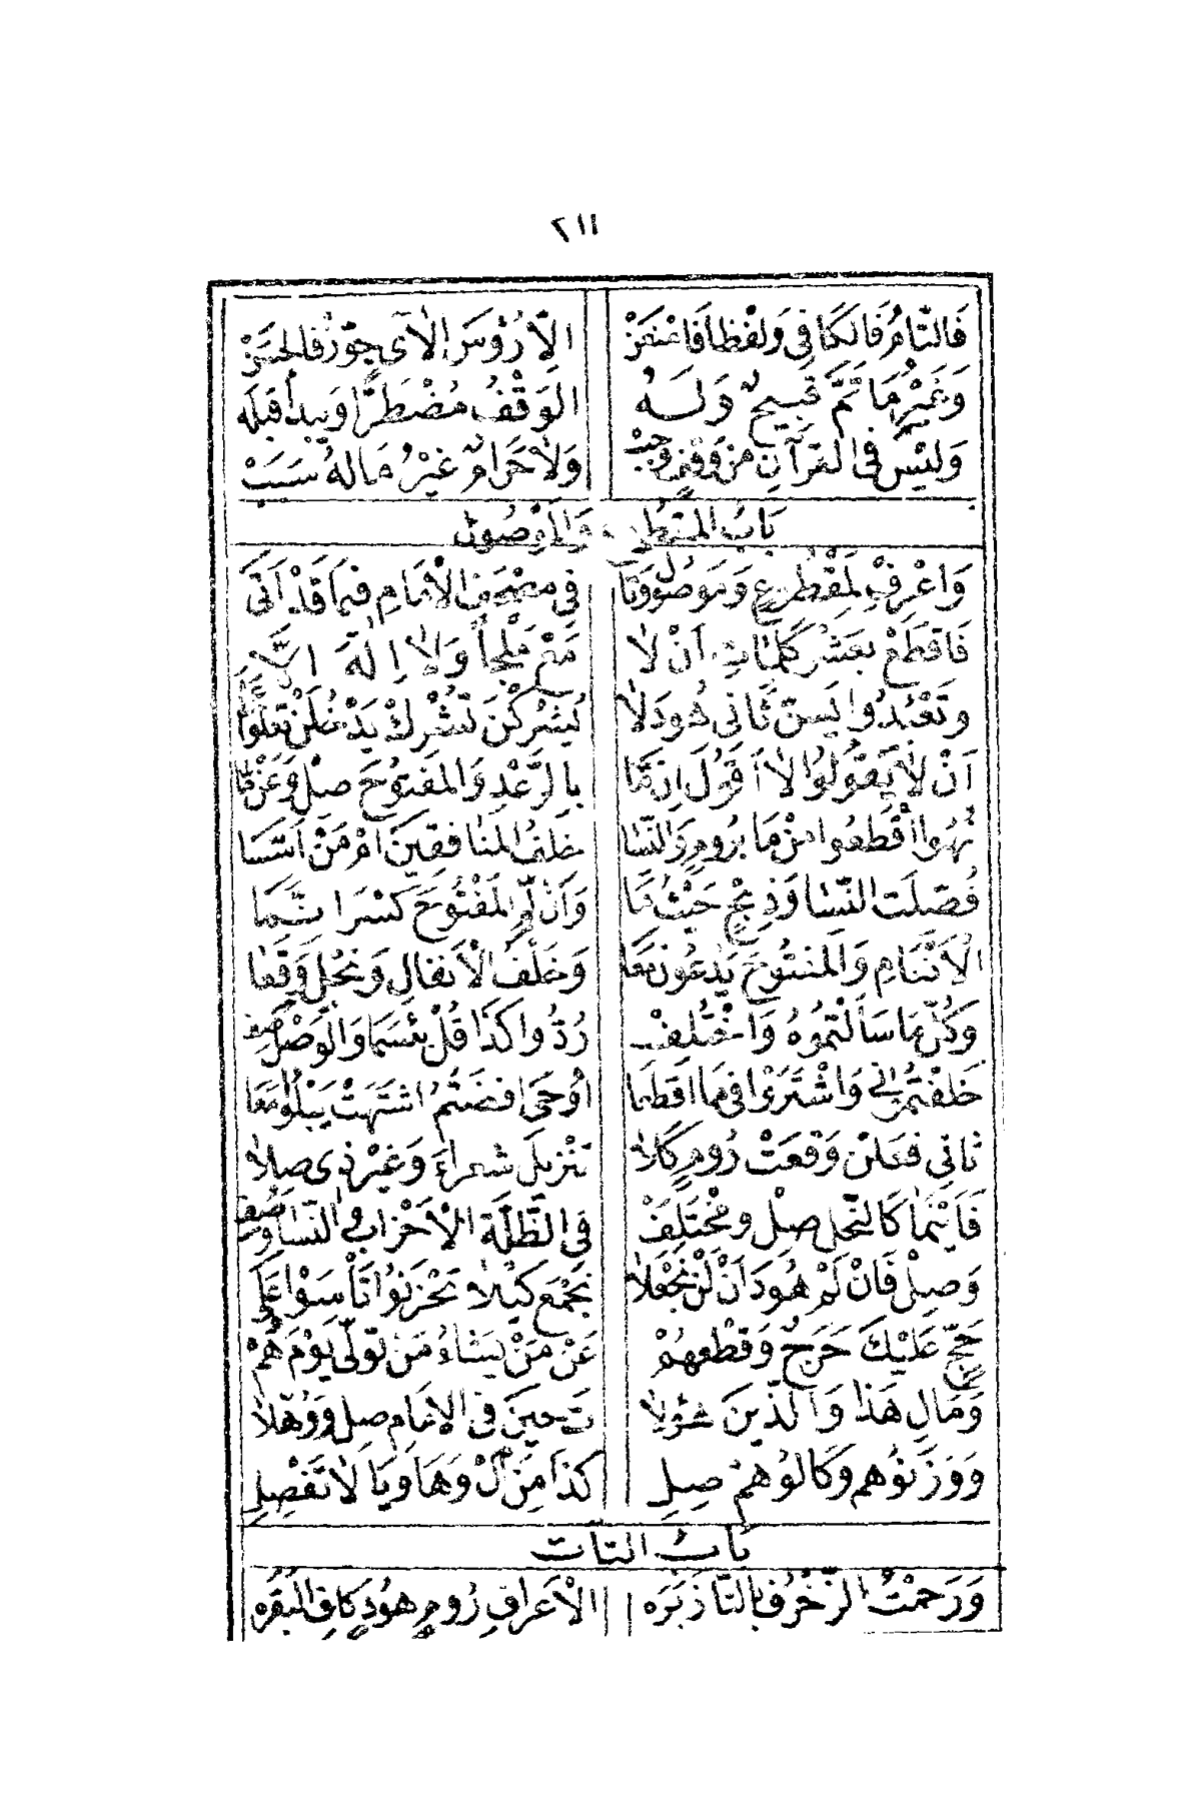 ٢١١
فَالتَّامُ فَالْكَافِي وَلَفْظًا فَامْنَعَنْ إِلَّا رُؤُسَ الْآيِ جَوِّزْ فَالْحَسَنْ
وَغَيْرُ مَا تَمَّ قَبِيحٌ وَلَهُ الْوَقْفُ مُضْطَرًّا وَيُبْدَأُ قَبْلَهُ
وَلَيْسَ فِي الْقُرْآنِ مِنْ وَقْفٍ وَجَبْ وَلَا حَرَامٌ غَيْرُ مَا لَهُ سَبَبْ
بَابُ الْمَقْطُوعِ وَالْمَوْصُولِ
وَاعْرِفْ لِمَقْطُوعٍ وَمَوْصُولٍ وَتَا فِي مُصْحَفِ الْإِمَامِ فِيمَا قَدْ أَتَى
فَاقْطَعْ بِعَشْرِ كَلِمَاتٍ أَنْ لَا مَعْ مَلْجَأً وَلَا إِلَهَ إِلَّا
وَتَعْبُدُوا يَاسِينَ ثَانِي هُودَ لَا يُشْرِكْنَ تُشْرِكْ يَدْخُلَنْ تَعْلُوا عَلَى
أَنْ لَا يَقُولُوا لَا أَقُولَ إِنْ مَا بِالرَّعْدِ وَالْمَفْتُوحَ صِلْ وَعَنْ مَا
نُهُوا اقْطَعُوا مِنْ مَا بِرُومٍ وَالنِّسَا خُلْفُ الْمُنَافِقِينَ أَمْ مَنْ أَسَّسَا
فُصِّلَتِ النِّسَا وَذِبْحٍ حَيْثُ مَا وَأَنْ لَمِ الْمَفْتُوحَ كَسْرُ إِنَّ مَا
الْأَنْعَامِ وَالْمَفْتُوحَ يَدْعُونَ مَعَا وَخُلْفُ الْأَنْفَالِ وَنَحْلٍ وَقَعَا
وَكُلِّ مَا سَأَلْتُمُوهُ وَاخْتُلِفْ رُدُّوا كَذَا قُلْ بِئْسَمَا وَالْوَصْلُ صِفْ
خَلَفْتُمُونِي وَاشْتَرَوْا فِي مَا اقْطَعَا أُوحِيَ أَفَضْتُمُ اشْتَهَتْ يَبْلُوا مَعَا
ثَانِي فَعَلْنَ وَقَعَتْ رُومٍ كِلَا تَنْزِيلُ شُعَرَاءَ وَغَيْرَ ذِي صِلَا
فَأَيْنَمَا كَالنَّحْلِ صِلْ وَمُخْتَلِفْ فِي الظُّلَّةِ الْأَحْزَابِ وَالنِّسَا وُصِفْ
وَصِلْ فَإِنْ لَمْ هُودَ أَنْ لَنْ نَجْعَلَا نَجْمَعَ كَيْلَا تَحْزَنُوا تَأْسَوْا عَلَى
حَجٌّ عَلَيْكَ حَرَجٌ وَقَطْعُهُمْ عَنْ مَنْ يَشَاءُ مَنْ تَوَلَّى يَوْمَ هُمْ
وَمَالِ هَذَا وَالَّذِينَ هَؤُلَا تَ حِينَ فِي الْإِمَامِ صِلْ وَوُهِّلَا
وَوَزَنُوهُمْ وَكَالُوهُمْ صِلِ كَذَا مِنَ الْ وَهَا وَيَا لَا تَفْصِلِ
بَابُ التَّاتِ
وَرَحْمَتُ الزُّخْرُفِ بِالتَّا زَبَرَهْ الْأَعْرَافِ رُومٍ هُودٍ كَافِ الْبَقَرَهْ